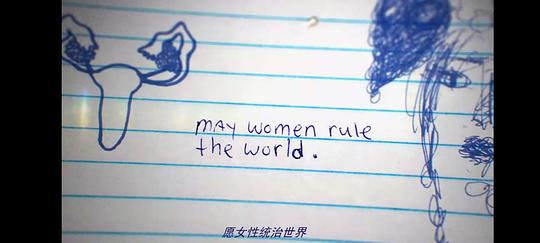 mAY women rule
the world.
愿女性统治世界